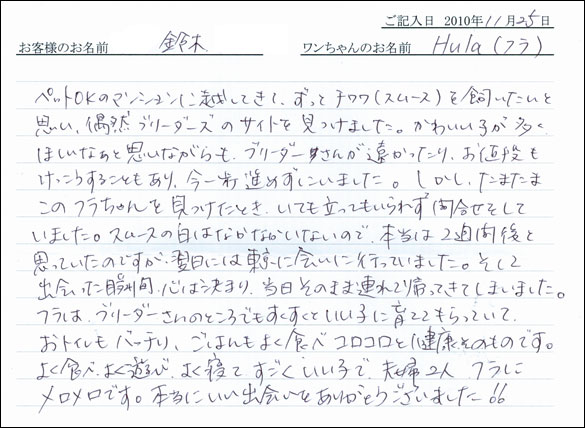 ご記入日 2010年11月25日
お客様のお名前 鈴木 ワンちゃんのお名前 Hula(フラ)
ペットOKのマンションに越してきて、ずっとチワワ(スムース)を飼いたいと
思い、偶然ブリーダーズのサイトを見つけました。かわいい子が多く、
ほしいなぁと思いながらも、ブリーダーさんが遠かったり、お値段も
けっこうすることもあり、今一歩進めずにいました。しかし、たまたま
このフラちゃんを見つけたとき、いても立ってもいられず問合せをして
いました。スムースの白はなかなかいないので、本当は2週間後と
思っていたのですが、翌日には東京に会いに行っていました。そして
出会った瞬間、心は決まり、当日そのまま連れて帰ってきてしまいました。
フラは、ブリーダーさんのところでもすくすくといい子に育ててもらっていて、
おトイレもバッチリ、ごはんもよく食べコロコロと健康そのものです。
よく食べ、よく遊び、よく寝て、すごくいい子で、夫婦2人フラに
メロメロです。本当にいい出会いをありがとうございました!!